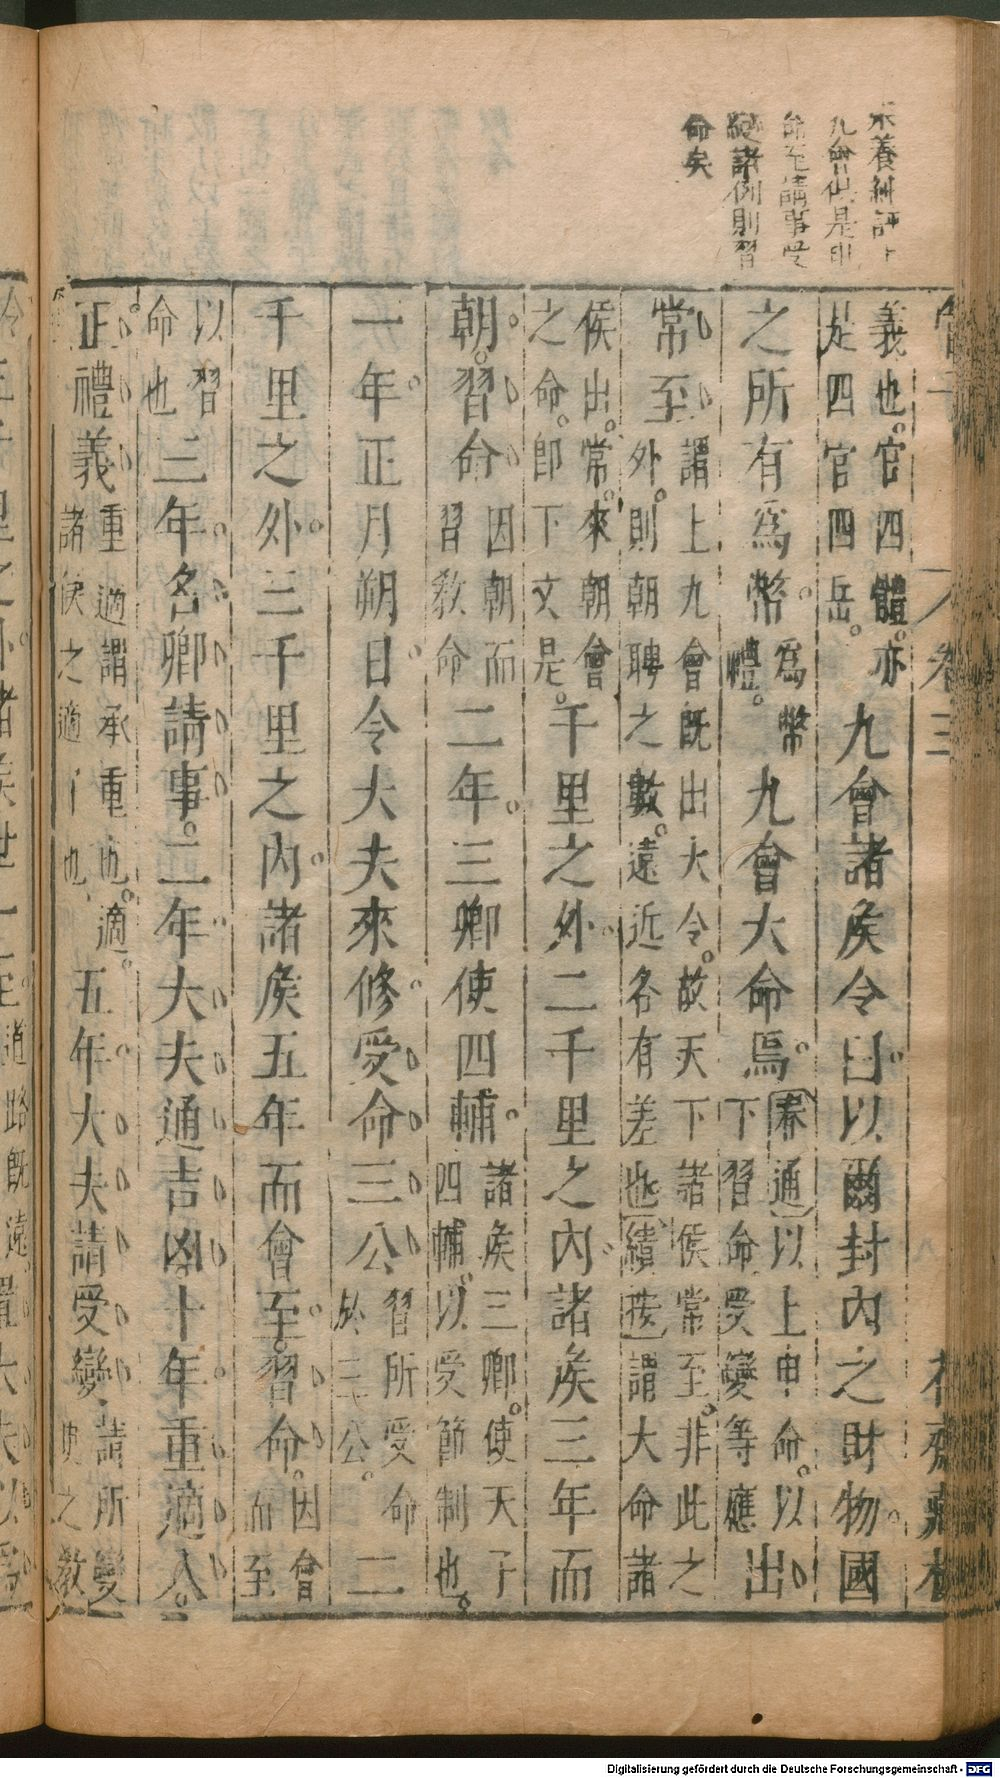 養純評
九會但是申
命至請事受
變諸例則習
命矣
卷三
義也。官四體。亦
是四官四岳。
九會諸矦令曰以爾封內之財物。國
之所有爲幣。
爲幣
禮。
九會大命焉。
春通以上申命。以
下習命受變等應
出
常至
謂上九會既出大令。故天下諸侯常至。非此之
外。則朝聘之數。遠近各有差也續按謂大命諸
侯出。常。來朝會
之命。卽下文是。
千里之外。二千里之內。諸矦三年而
朝。習命
因朝而
習敎命
二年。三卿使四輔。
諸矦三卿。使天子
四輔。以受節制也。
一年正月朔日。令大夫來修受命三公。
習所受命
於三公。
二
千里之外。三千里之內。諸矦五年而會至。習命。
因會
而至
以習
命也
三年。名卿請事。二年大夫通吉凶。十年重適入。
正禮義
重適謂承重也。適。
諸侯之適子也
五年大夫請受變
請所變
更之敎